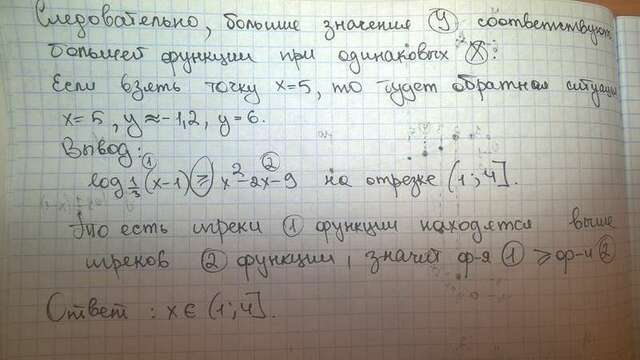 Следовательно, большие значения (y) соответствуют
большей функции при одинаковых (x).
Если взять точку x=5, то будет обратная ситуация
x=5, y≈-1,2, y=6.
Вывод:
① ②
log⅓(x-1) ≥ x²-2x-9 на отрезке (1;4].
То есть иреки ① функции находятся выше
иреков ② функции, значит ф-я ① ≥ ф-и ②
Ответ: x∈(1;4].